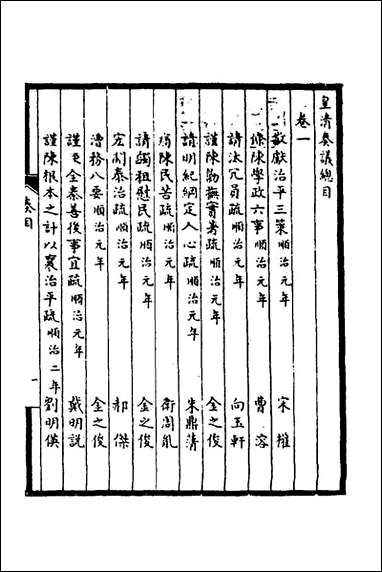 皇清奏議總目
卷一
敬獻治平三策順治元年 宋權
條陳學政六事順治元年 曹溶
請汰冗員疏順治元年 向玉軒
謹陳勦撫實著疏順治元年 金之俊
請明紀綱定人心疏順治元年 朱鼎藩
痛陳民苦疏順治元年 衛周胤
請蠲租慰民疏順治元年 金之俊
宏開泰治疏順治元年 郝傑
漕務八要順治元年 金之俊
謹更全秦善後事宜疏順治元年 戴明說
謹陳根本之計以襄治平疏順治二年 劉明偀
奏目
一